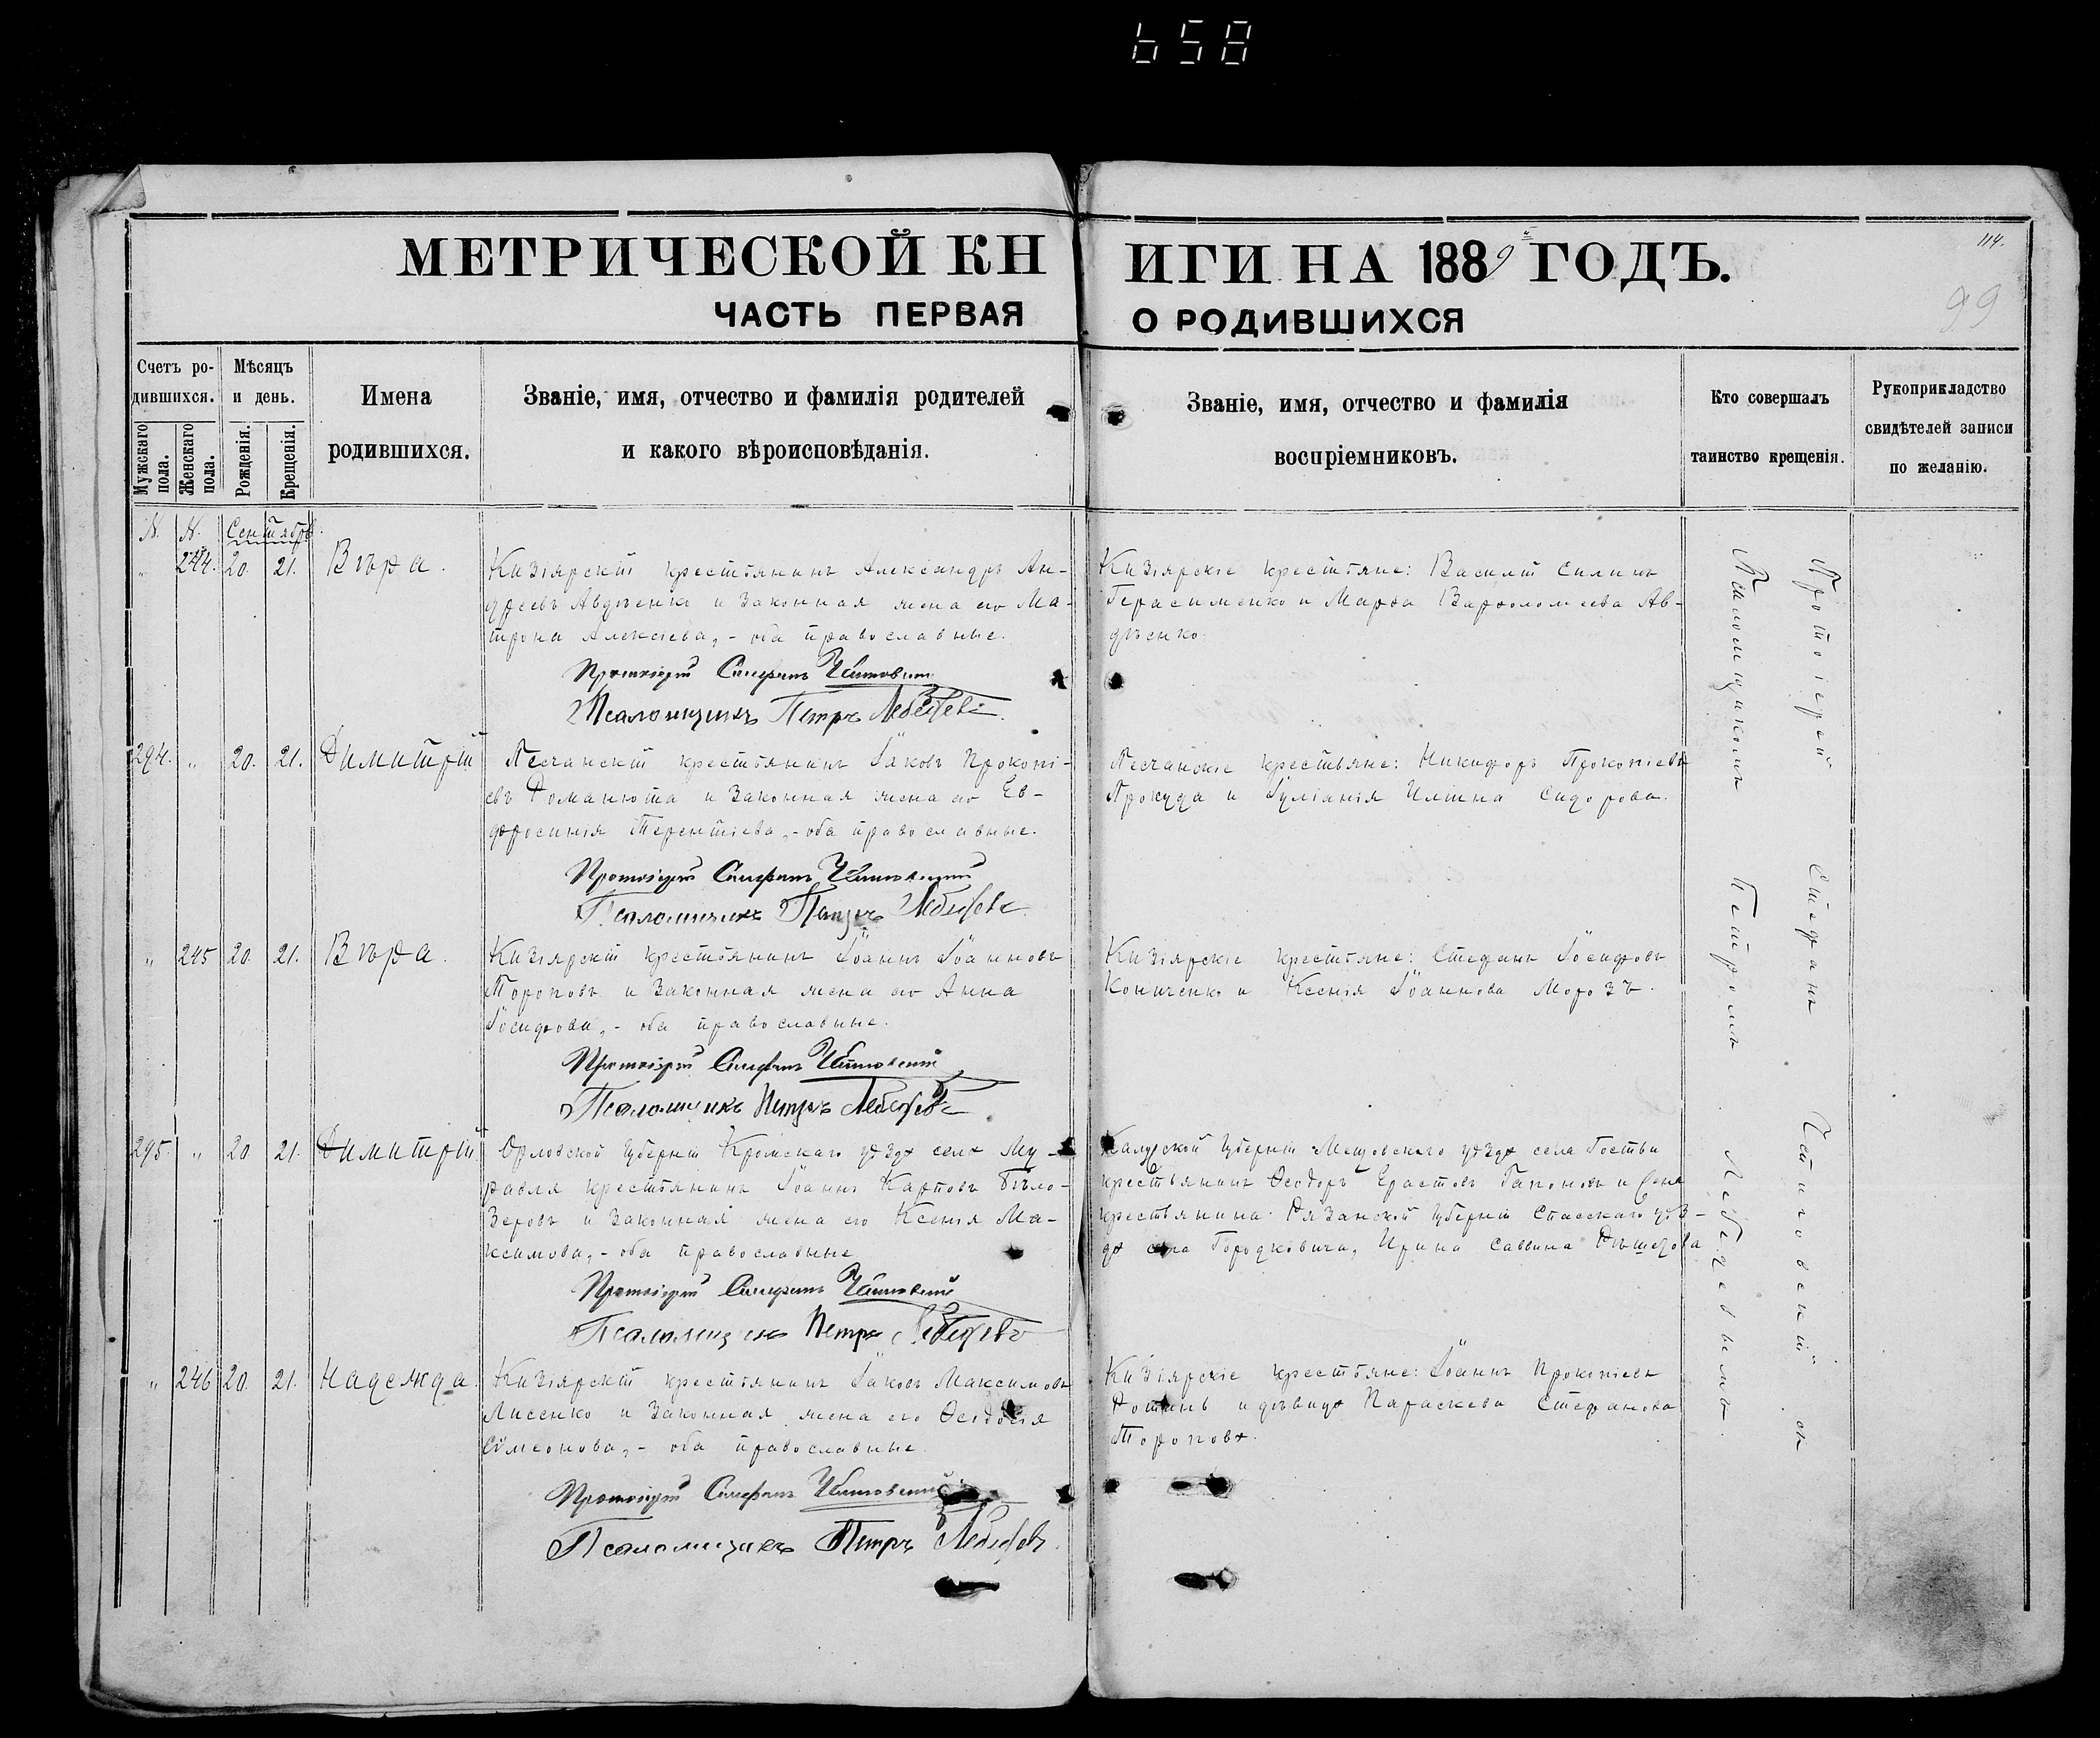 658
МЕТРИЧЕСКОЙ КНИГИ НА 1889й ГОДЪ.
114.
99
ЧАСТЬ ПЕРВАЯ О РОДИВШИХСЯ
Счетъ родившихся.
Мужскаго пола.
Женскаго пола.
Мѣсяцъ и день.
Рожденія.
Крещенія.
Имена родившихся.
Званіе, имя, отчество и фамилія родителей
и какого вѣроисповѣданія.
Званіе, имя, отчество и фамилія
воспріемниковъ.
Кто совершалъ
таинство крещенія.
Рукоприкладство
свидѣтелей записи
по желанію.
N. N. Сентябрь.
" 244. 20. 21. Вѣра.
Кизіярскій крестьянинъ Александръ Ан-
дреевъ Авдѣенко и законная жена его Ма-
трона Алексіева, - оба православные.
Протоіерей Стефанъ
Псаломщикъ Петръ Лебедевъ.
Кизіярскіе крестьяне: Василій Силинъ
Герасименко и Марѳа Варѳоломеева Ав-
дѣенко.
294. " 20. 21. Димитрій
Песчанскій крестьянинъ Іаковъ Прокопі-
евъ Романюта и законная жена его Ев-
фросинія Терентіева, - оба православные.
Протоіерей Стефанъ
Псаломщикъ Петръ Лебедевъ
Песчанскіе крестьяне: Никифоръ Прокопіевъ
Прокуда и Іуліанія Ильина Сидорова.
" 245 20. 21. Вѣра.
Кизіярскій крестьянинъ Іоаннъ Іоанновъ
Тороповъ и законная жена его Анна
Іосифова, - оба православные.
Протоіерей Стефанъ
Псаломщикъ Петръ Лебедевъ
Кизіярскіе крестьяне: Стефанъ Іосифовъ
Кониченко и Ксенія Іоаннова Морозъ.
295. " 20 21. Димитрій
Орловской губерніи Кромскаго уѣзда села Му-
равля крестьянинъ Іоаннъ Карповъ Бѣло-
зеровъ и законная жена его Ксенія Ма-
ксимова, - оба православные
Протоіерей Стефанъ
Псаломщикъ Петръ Лебедевъ
Калужской губерніи Мещовскаго уѣзда села Гостьи
крестьянинъ Ѳеодоръ Ерастовъ Гапоновъ и жена
крестьянина Рязанской губерніи Спасскаго уѣз-
да села Городковича, Ирина Саввина
" 246 20. 21. Надежда.
Кизіярскій крестьянинъ Іаковъ Максимовъ
Лисенко и законная жена его Ѳеодосія
Симеонова, - оба православные.
Протоіерей Стефанъ
Псаломщикъ Петръ Лебедевъ.
Кизіярскіе крестьяне: Іоаннъ Прокопіевъ
и дѣвица Параскева Стефанова
Торопова.
Протоіерей Стефанъ съ
Псаломщикомъ Петромъ Лебедевымъ.